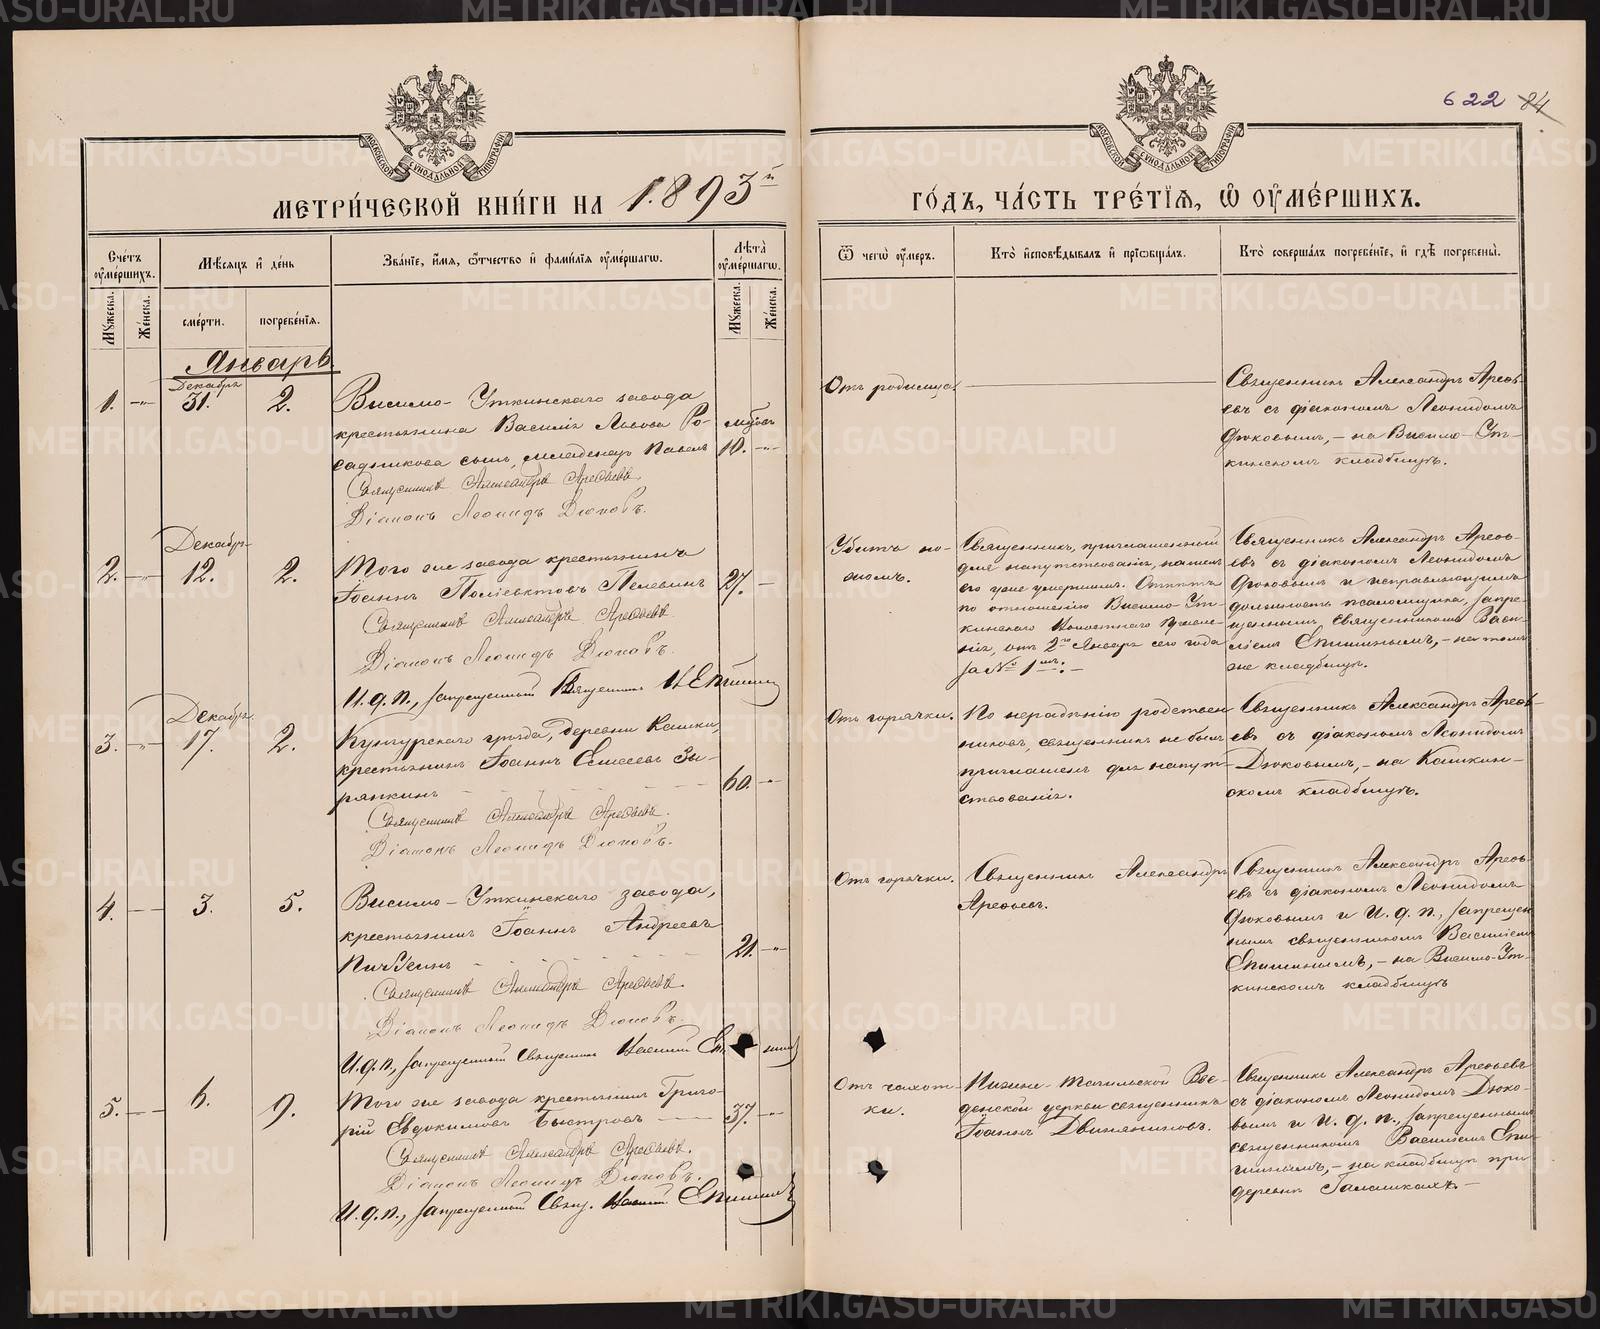 622 84
МОСКОВСКОЙ СѴНОДАЛЬНОЙ ТИПОГРАФІИ
МОСКОВСКОЙ СѴНОДАЛЬНОЙ ТИПОГРАФІИ
МЕТРИ́ЧЕСКОЙ КНИ́ГИ НА 1893й
ГО́ДЪ, ЧА́СТЬ ТРЕ́ТІЯ, Ѡ ОУ҆МЕ́РШИХЪ.
Сче́тъ оу҆ме́ршихъ.
Мꙋ́жеска.
Же́нска.
Мѣ́сяцъ и҆ де́нь
сме́рти.
погребе́нїя.
Зва́нїе, и҆́мя, ѻ҆́тчество и҆ фами́лїя оу҆ме́ршагѡ.
Лѣ́та оу҆ме́ршагѡ.
Мꙋ́жеска.
Же́нска.
Ѿ чегѡ̀ оу҆́меръ.
Кто̀ и҆сповѣ́дывалъ и҆ прїѡбща́лъ.
Кто̀ соверша́лъ погребе́нїе, и҆ гдѣ̀ погребены̀.
Январь.
1. -"- Декабрь 31. 2.
Висимо-Уткинскаго завода
крестьянина Василія Львова Ро-
садникова сынъ, младенецъ Павелъ
10. -"-
Священникъ Александръ Арефьевъ.
Діаконъ Леонидъ Дюковъ.
Отъ родимца
Священникъ Александръ Арефь-
евъ съ діакономъ Леонидомъ
Дюковымъ, – на Висимо-Ут-
кинскомъ кладбищѣ.
2. -"- Декабрь 12. 2.
Того же завода крестьянинъ
Іоаннъ Поліевктовъ Пелевинъ
27. -
Священникъ Александръ Арефьевъ.
Діаконъ Леонидъ Дюковъ.
И. д. п., запрещенный Священникъ В. Епишинъ
Убитъ но-
жомъ.
Священникъ, приглашенный
для напутствованія, нашелъ
его уже умершимъ. Отпѣтъ
по отношенію Висимо-Ут-
кинскаго Волостнаго Правле-
нія, отъ 2го Января сего года
за № 1мъ. –
Священникъ Александръ Арефь-
евъ съ діакономъ Леонидомъ
Дюковымъ и исправляющимъ
должность псаломщика, запре-
щеннымъ священникомъ Васи-
ліемъ Епишинымъ, – на томъ
же кладбищѣ.
3. -"- Декабрь 17. 2.
Кунгурскаго уѣзда, деревни Кашки,
крестьянинъ Іоаннъ Елисеевъ Зы-
рянкинъ
60. -"-
Священникъ Александръ Арефьевъ.
Діаконъ Леонидъ Дюковъ.
Отъ горячки.
По нерадѣнію родствен-
никовъ, священникъ не былъ
приглашенъ для напут-
ствованія.
Священникъ Александръ Арефь-
евъ съ діакономъ Леонидомъ
Дюковымъ, – на Кашкин-
скомъ кладбищѣ.
4. - - 3. 5.
Висимо-Уткинскаго завода,
крестьянинъ Іоаннъ Андреевъ
21. -"-
Священникъ Александръ Арефьевъ.
Діаконъ Леонидъ Дюковъ.
И. д. п., запрещенный Священникъ Василій Епишинъ
Отъ горячки.
Священникъ Александръ
Арефьевъ.
Священникъ Александръ Арефь-
евъ съ діакономъ Леонидомъ
Дюковымъ и И. д. п., запрещен-
нымъ священникомъ Василіемъ
Епишинымъ, – на Висимо-Ут-
кинскомъ кладбищѣ
5. - - 6. 9.
Того же завода крестьянинъ Григо-
рій Евдокимовъ Быстровъ
37. -"-
Священникъ Александръ Арефьевъ.
Діаконъ Леонидъ Дюковъ.
И. д. п., запрещенный Свящ. Василій Епишинъ
Отъ чахот-
ки.
Нижне-Тагильской Вве-
денской церкви священникъ
Іоаннъ Двиняниновъ.
Священникъ Александръ Арефьевъ
съ діакономъ Леонидомъ Дюко-
вымъ и И. д. п., запрещеннымъ
священникомъ Василіемъ Епи-
шинымъ, – на кладбищѣ при
деревнѣ Галашкахъ. –
METRIKI.GASO-URAL.RU